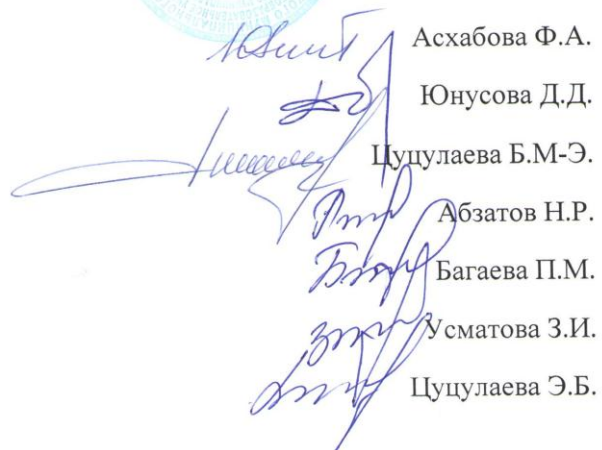 Асхабова Ф.А.
Юнусова Д.Д.
Цуцулаева Б.М-Э.
Абзатов Н.Р.
Багаева П.М.
Усматова З.И.
Цуцулаева Э.Б.